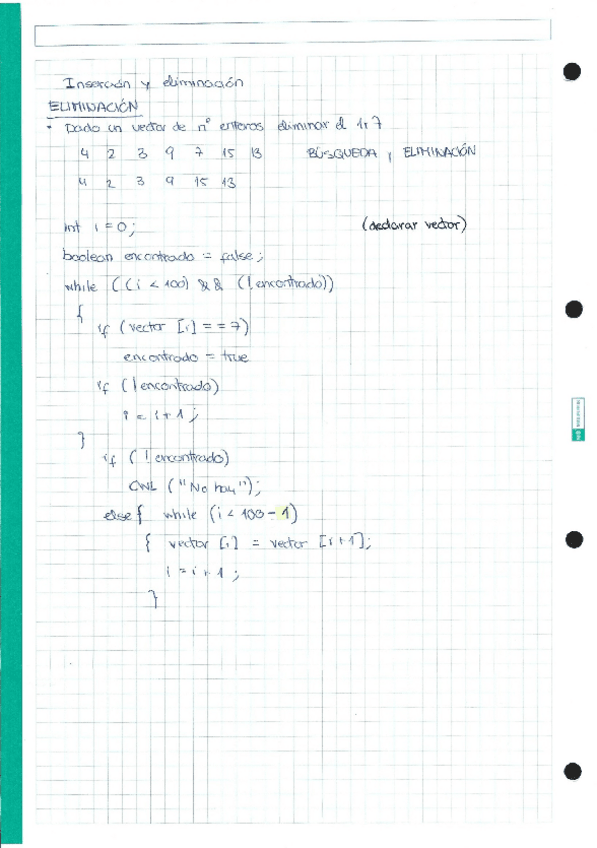 Inserción y eliminación
ELIMINACIÓN
• Dado un vector de nº enteros eliminar el 1r 7
4 2 3 9 7 15 13 BÚSQUEDA y ELIMINACIÓN
4 2 3 9 15 13
int i = 0; (declarar vector)
boolean encontrado = false;
while ((i < 100) && (!encontrado))
{
if (vector [i] == 7)
encontrado = true
if (!encontrado)
i = i + 1;
}
if (!encontrado)
CWL ("No hay");
else { while (i < 100 - 1)
{ vector [i] = vector [i+1];
i = i + 1;
}